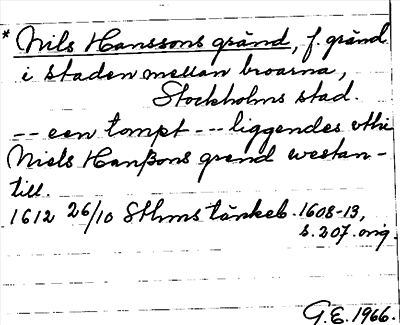 * Nils Hanssons gränd, f. gränd
i staden mellan broarna,
Stockholms stad.
-- een tompt --- liggendes vthi
Niels Hanßons grend westan-
till.
1612 26/10 Sthms tänkeb. 1608-13,
s. 207. orig.
G.E. 1966.